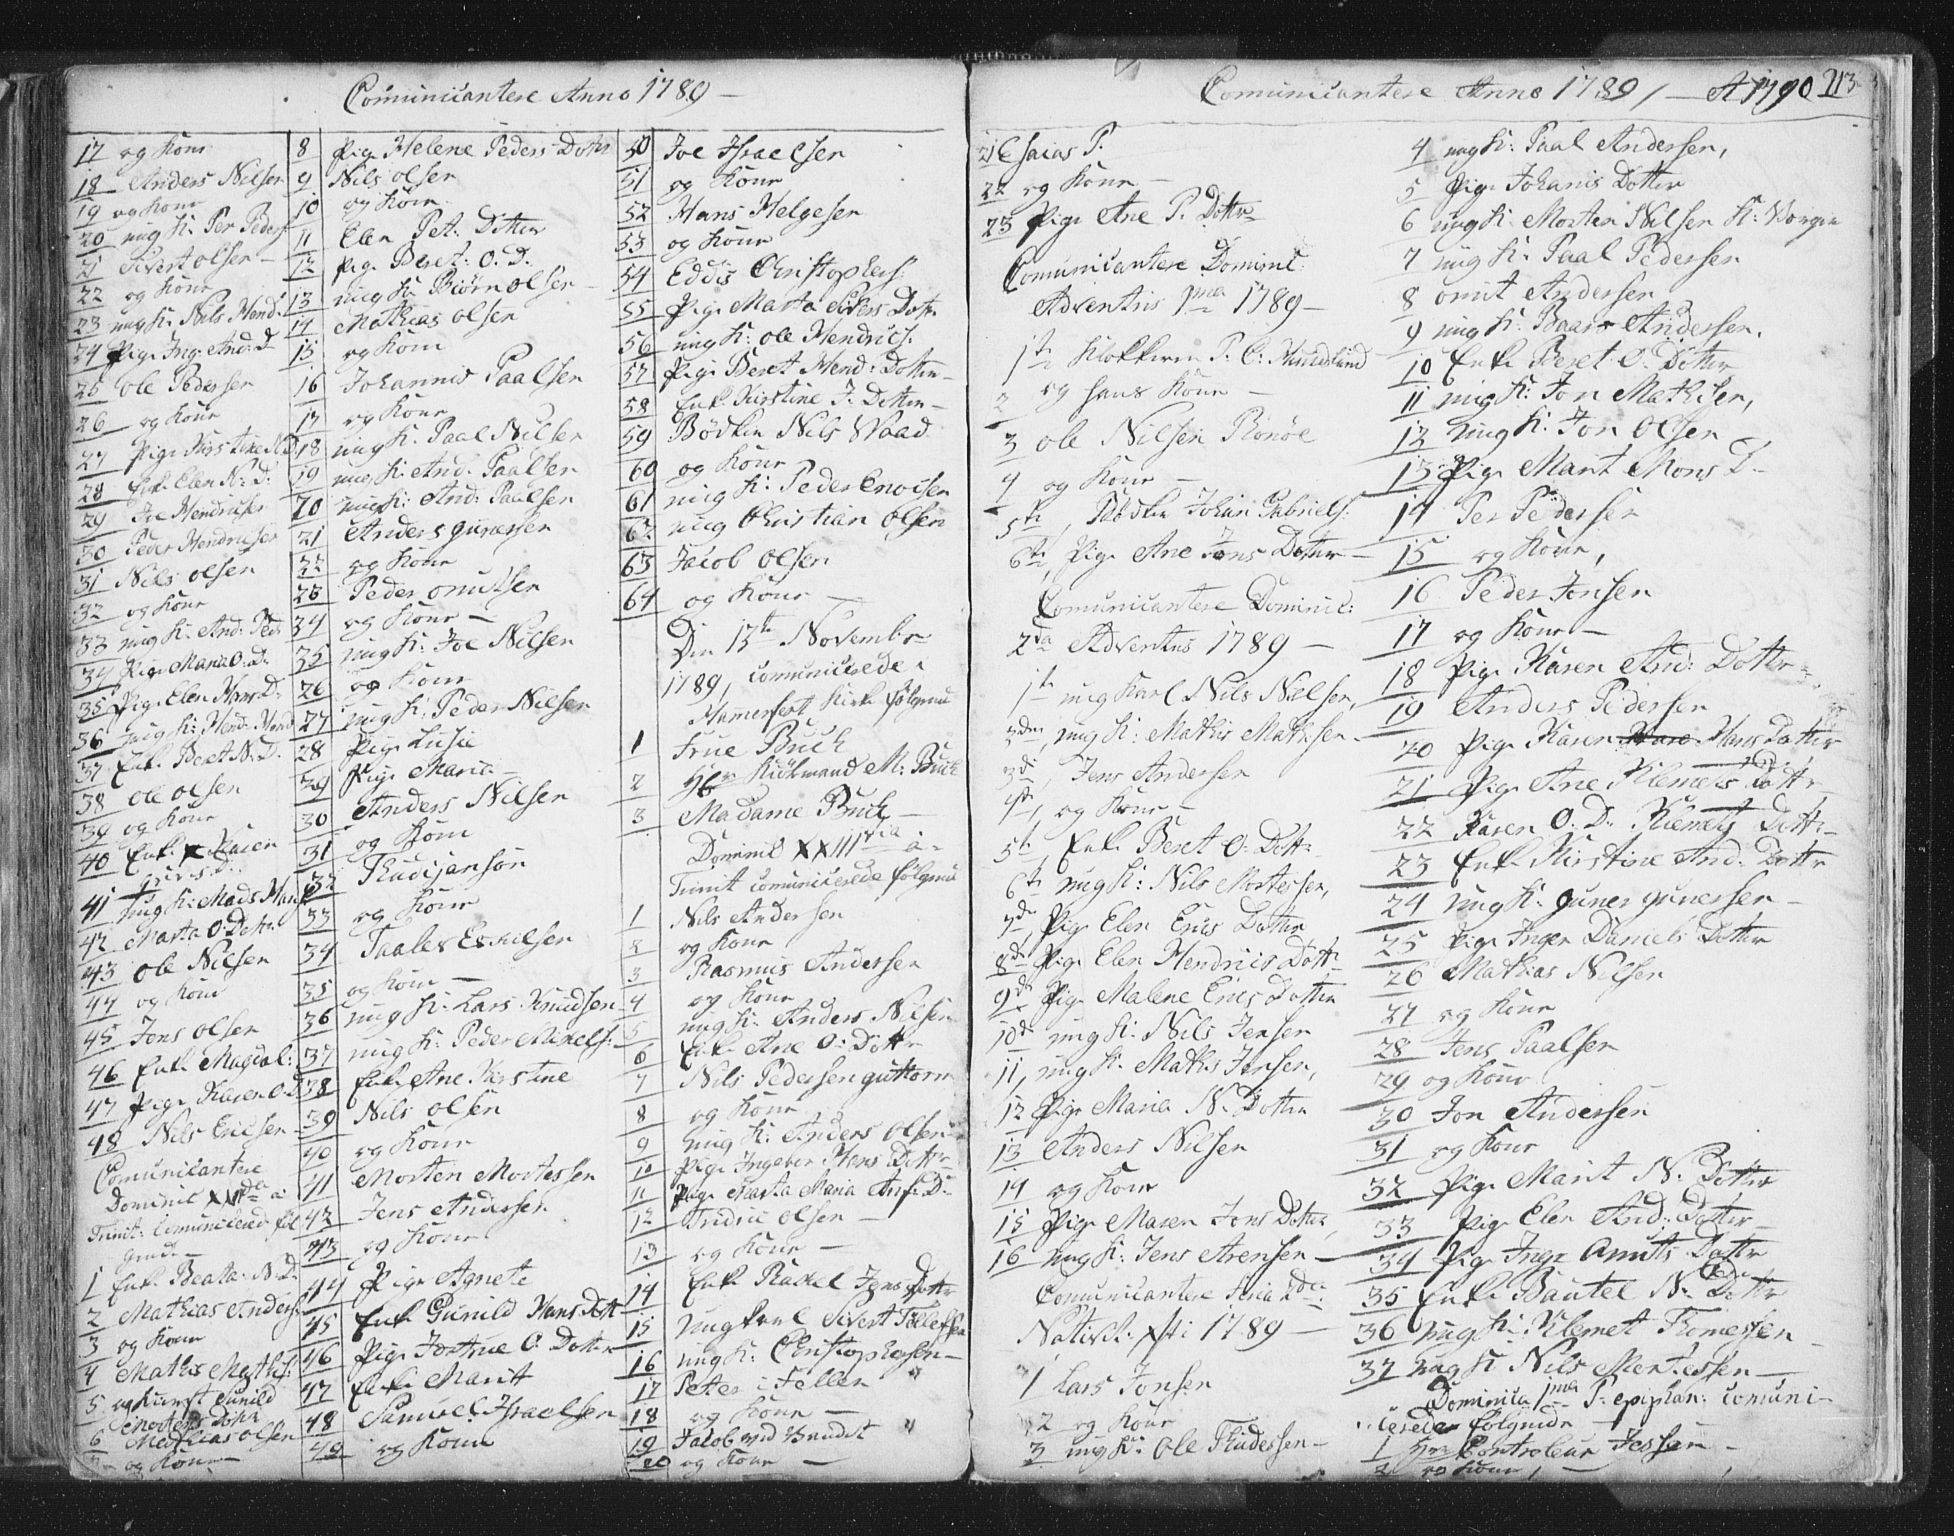 Comunicantere Anno 1789 –
17 og Kone
18 Anders Nilsen
19 og Kone
20 ung K: Per Peders
21 Sivert olsen –
22 og Kone
23 ung K: Nils Hend:
24 Pige Ing: And: D
25 ole Pedersen
26 og Kone
27 Pige Kirstine N D
28 Enk: Elen N: D:
29 Joe Hendricsen
30 Peder Hendricsen
31 Nils olsen
32 og Kone
33 ung K: And: Peds
34 Pige Maria O: D:
35 Pige Elen Hans D:
36 ung K: Hend: Hend
37 Enk: Beret N: D:
38 ole olsen
39 og Kone
40 Enk: Karen
41 ung K: Mads Hans
42 Marta O: Dotter
43 ole Nilsen
44 og Kone
45 Jens olsen
46 Enk: Magdal:
47 Pige Karen O: D
48 Nils Ericsen
Comunicantere
Dominic XXIIda a:
Trinit: comunicered føl
gende –
1 Enk: Beata N: D:
2 Mathias Anders:
3 og Kone
4 Mathis Mathis:
5 og Gunild
Mortens Dotter
6 Mathias olsen
7 og Kone –
8 Pige Helene Peders Dotter
9 Nils olsen
10 og Kone
11 Elen Pet: Dotter
12 Pige Beret: O. D.
13 ung K: Biørn olsen –
14 Mathias olsen
15 og Kone
16 Johannis Paalsen
17 og Kone
18 ung K. Paal Nilsen
19 ung K: And: Paalsen
20 ung K: And: Paulsen
21 Anders gunersen
22 og Kone
23 Peder omutsen
24 og Kone –
25 ung K: Joe Nilsen
26 og Kone
27 ung K: Peder Nilsen
28 Pige Lusie
29 Pige Maria
30 Anders Nilsen
31 og Kone
32
33 og Kone
34 Taales Eskilsen
35 og Kone –
36 ung K: Lars Knudsen
37 ung K: Peder Mikels:
38 Enk: Ane Kirstine
39 Nils olsen
40 og Kone
41 Morten Mortessen
42 Jens Andersen
43 og Kone
44 Pige Agnete
45 Enk: Gunild Hans Dott
46 Pige O: Dotter
47 Enk: Marit
48 Samuel Israelsen
49 og Kone
50 Joe Israelsen
51 og Kone
52 Hans Helgesen
53 og Kone
54 Eddis Christophers:
55 Pige Marta Sivers Dotr
56 ung K: ole Hendrics:
57 Pige Beret Hend: Dotter –
58 Enk: Kirstine J: Dotter –
59 Bødker Nils Waad
60 og Kone
61 ung K: Peder Enocsen
62 ung Christian olsen
63 Jacob olsen
64 og Kone –
Den 15te November
1789, comunicerede i
Hamerfest Kirke følgende
1 Frue Buck
2 Hr Kiøbmand M: Buck
3 Madame Buck –
Dominic XXIIItia a:
Trinit comunicerede følgende
1 Nils Andersen
2 og Kone
3 Rasmus Andersen
4 og Kone
5 ung K: Anders Nilsen
6 Enk: Ane O: Dotter
7 Nils Pedersen guttorm
8 og Kone
9 ung K: Anders olsen
10 Pige Ingebor Hans Dotter
11 Pige Marta Maria D:
12 Fridric olsen –
13 og Kone –
14 Enk: Rakel Jens Dotter
15 ung karl Sivert Tollefsen
16 ung K: Christophersen –
17 Peter i Fellen
18 og Kone –
19 Jacob ved
20 og Kone –
Comunicantere Anno 1789 / – A 1790 213
21 Esaias P.
22 og Kone –
23 Pige Ane P. Dotter
Comunicantere Dominic:
Adventus 1ma 1789 –
1te Klokkeren P: C:
2 og hans Kone –
3 ole Nilsen Rønøe
4 og Kone –
5te Bødker Johan Gabriels:
6te Pige Ane Jons Dotter –
Comunicantere Dominic:
2da Adventus 1789 –
1te ung Karl Nils Nielsen,
2den, ung K: Mathis Mathisen
3di, Jens Andersen
4de, og Kone –
5te Enk: Beret O: Dotter
6te ung K: Nils Mortessen,
7de, Pige Elen Erics Dotter
8de Pige Elen Hendrics Dotter
9de Pige Malene Erics Dotter
10de ung K: Nils Jensen
11, ung K: Mathis Jensen,
12 Pige Maria N: Dotter
13 Anders Nilsen
14 og Kone
15 Pige Maren Jons Dotter,
16 ung K: Jens Arensen –
Comunicantere Feria 2da:
Nativit: Xsti 1789 –
1 Lars Jonsen
2 og Kone
3 ung K: ole Thudessen –
4 ung K: Paal Andersen,
5 Pige Johanis Dotter
6 ung K: Morten Nilsen
7 ung K: Paal Pedersen
8 omut Andersen
9 ung K: Baar Andersen.
10 Enk: Beret O: Dotter
11 ung K: Jon Mathisen,
12 ung K: Jon olsen
13 Pige Marit Mons D –
14 Per Pedersen
15 og Kone,
16 Peder Jonsen
17 og Kone –
18 Pige Karen And: Dotter
19 Anders Pedersen
20 Pige Karen Hans Dotter
21 Pige Ane Klemets Dotter
22 Karen O: D: Klemets Dotter
23 Enk: Kirstine And: Dotter
24 ung K: guner gunersen –
25 Pige Inger Daniels Dotter
26 Mathias Nilsen
27 og Kone
28 Jens Paalsen
29 og Kone
30 Jon Andersen
31 og Kone
32 Pige Marit N: Dotter
33 Pige Elen And: Dotter
34 Pige Inge Omuts Dotter
35 Enk: N: Dotter
36 ung K: Klemet Thomessen
37 ung K Nils Mortessen –
Dominica 1ma P: epiphan: comuni-
cerede følgende –
1 Hr Controleur Jessen –
2 og Kone, –